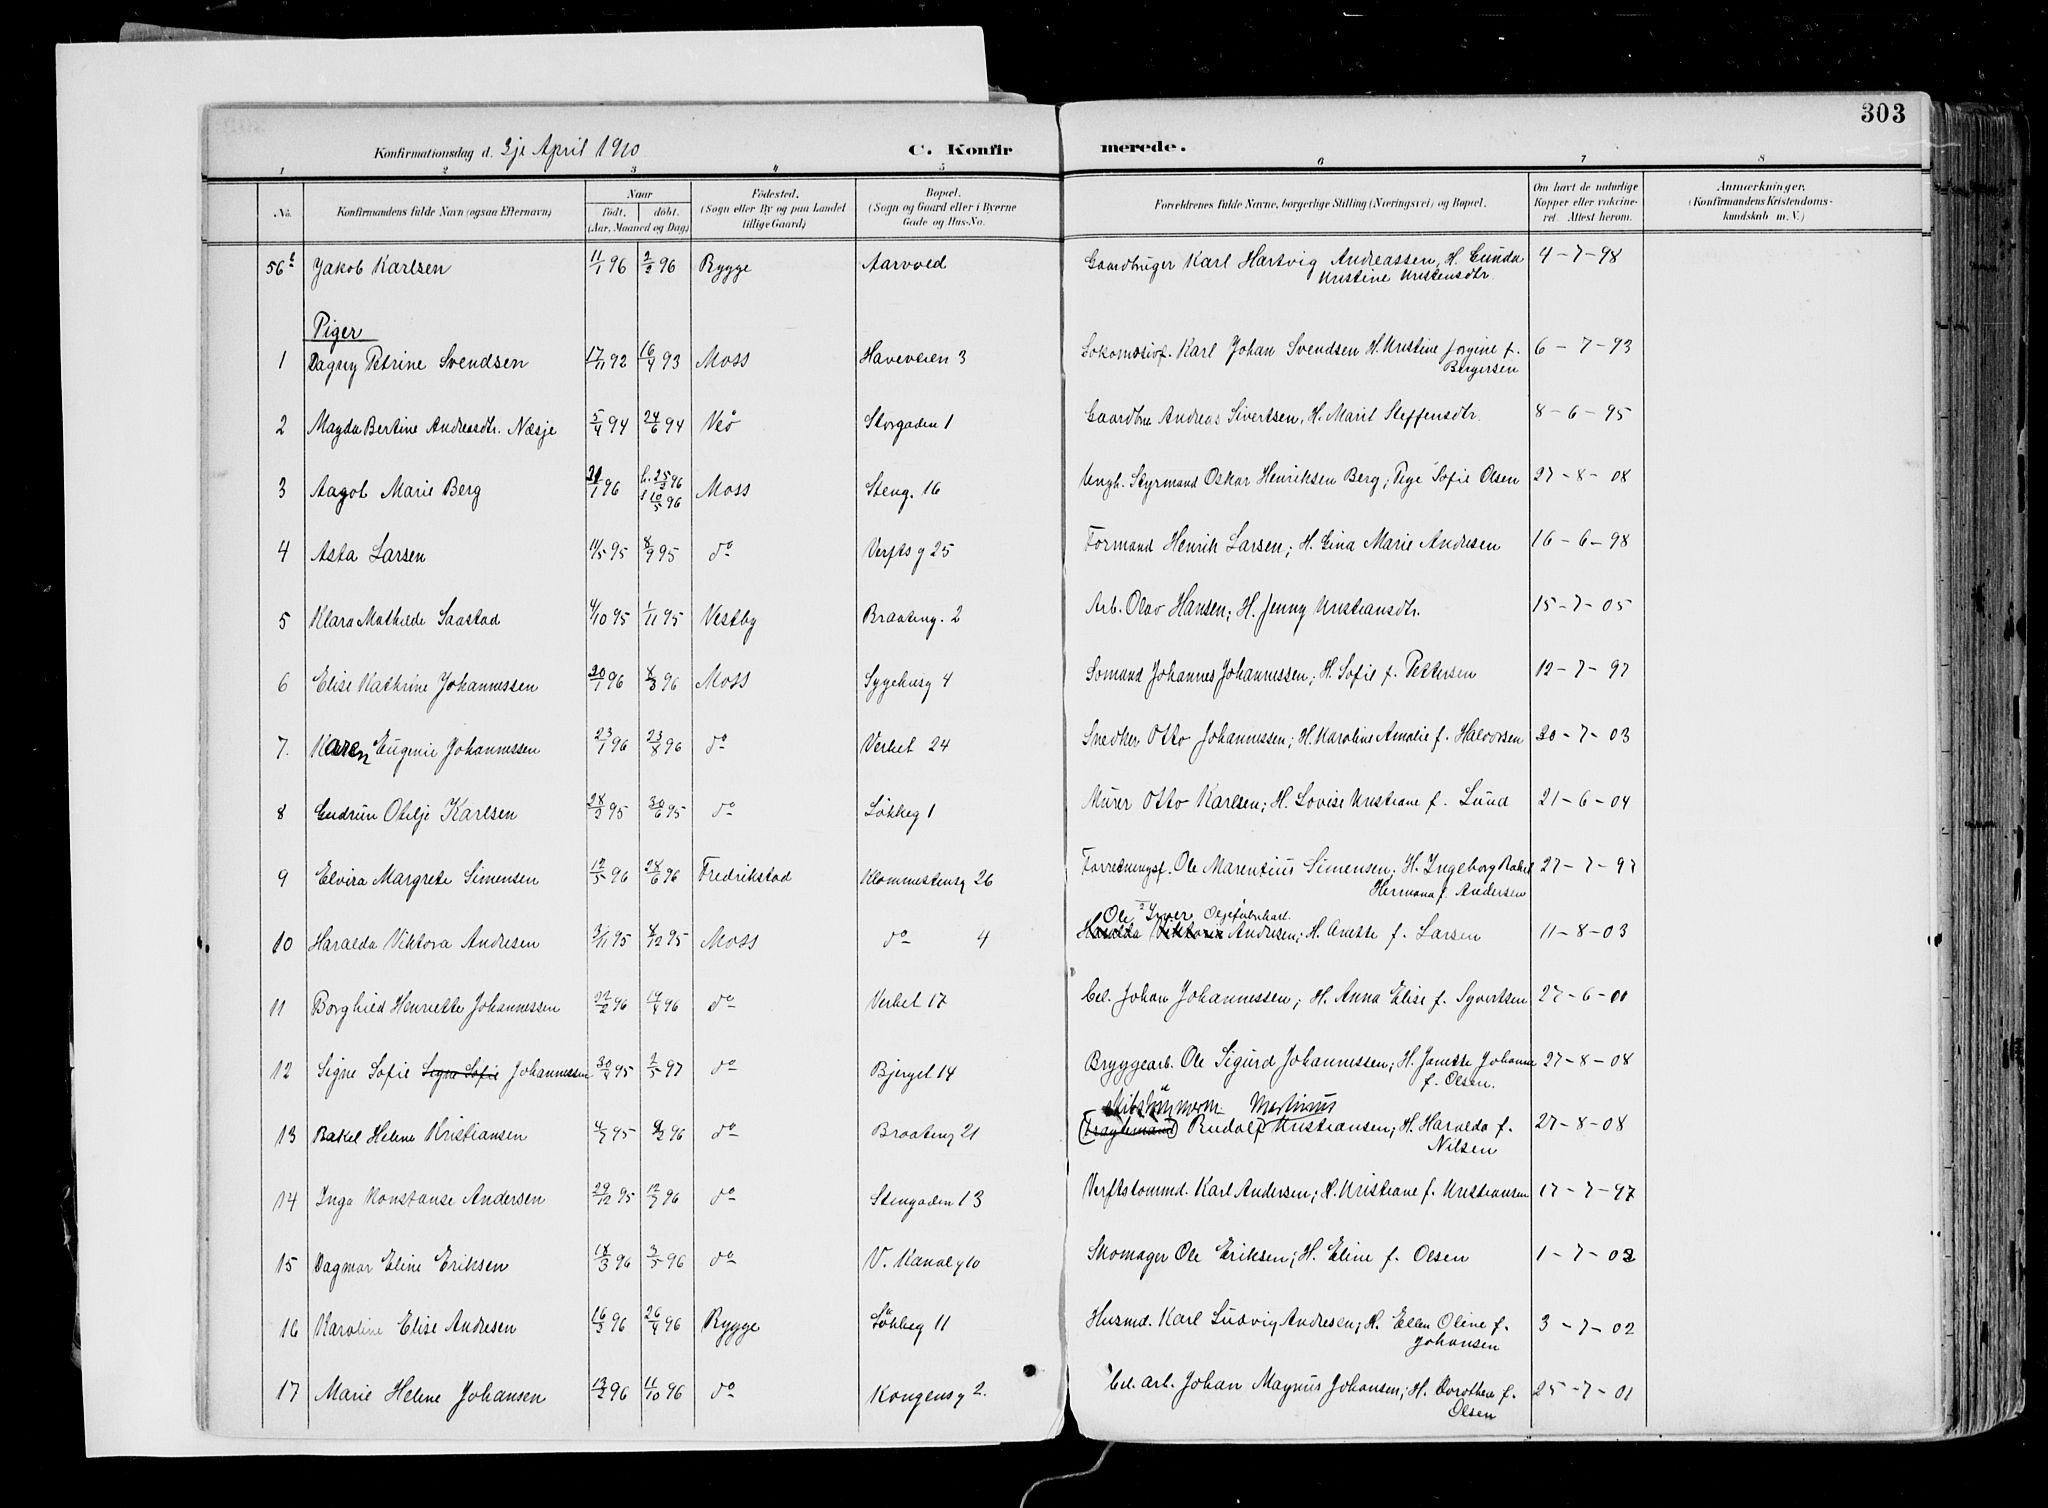 303
Konfirmationsdag d. 3je April 1910
C. Konfirmerede.
1 2 3 4 5 6 7 8
No. Konfirmandens fulde Navn (ogsaa Efternavn) Naar født, døbt. (Aar, Maaned og Dag) Fødested. (Sogn eller By og paa Landet tillige Gaard) Bopæl. (Sogn og Gaard eller i Byerne Gade og Hus-No. Forældrenes fulde Navne, borgerlige Stilling (Næringsvei) og Bopæl. Om havt de naturlige Kopper eller vakcineret Attest herom. Anmærkninger. (Konfirmandens Kristendomskundskab m. V.)
56 Jakob Karlsen 11/1 96 2/3 96 Rygge Aarvold Gaardbruger Karl Hartvig Andreassen, H. Gunda 4-7-98
Kristine Kristensdtr.
Piger
1 Dagny Petrine Svendsen 17/11 92 16/4 93 Moss Haveveien 3 Lokomotivf. Karl Johan Svendsen H. Kristine Jørgine f. 6-7-93
Birgersen
2 Magda Bertine Andreasdtr. Næsje 5/4 94 24/6 94 Veø Storgaden 1 Gaardbr Andreas Sivertsen, H. Marit Steffensdtr. 8-6-95
3 Aagot Marie Berg 31/1 96 h. 25/3 96 Moss Steng. 16 Ungk. Styrmand Oskar Henriksen Berg; Pige Sofie Olsen 27-8-08
10/5 96
4 Asta Larsen 11/5 95 8/9 95 do Verfts g 25 Formand Henrik Larsen; H. Gina Marie Andresen 16-6-98
5 Klara Mathilde Saastad 4/10 95 1/11 95 Vestby Braateng. 2 Arb. Olav Hansen; H. Jenny Kristiansdtr. 15-7-05
6 Elise Kathrine Johannessen 30/1 96 8/3 96 Moss Sygehusg 4 Sømand Johannes Johannessen; H. Sofie f. Pettersen 12-7-97
7. Karen Eugenie Johannessen 23/1 96 23/8 96 do Verket 24 Snedker Otto Johannessen; H. Karoline Amalie f. Halvorsen 30-7-03
8 Gudrun Otilje Karlsen 28/3 95 30/6 95 do Løkkeg 1 Murer Otto Karlsen; H. Lovise Kristiane f. Lund 21-6-04
9 Elvira Margrete Simensen 12/5 96 28/6 96 Fredrikstad Klommestensg 26 Forretningsf. Ole Marentius Simensen, H. Ingeborg Rakel 27-7-97
Hermana f. Andersen
Ole Iver
10 Haralda Viktora Andresen 3/11 95 8/12 95 Moss do 4 Haralda Viktoria Andresen; H. Anette f. Larsen 11-8-03
11 Borghild Henriette Johannessen 22/2 96 17/4 96 do Verket 17 Cel. Johan Johannessen; H. Anna Elise f. Syvertsen 27-6-01
12 Signe Sofie Signe Sofie Johannessen 30/4 95 2/5 97 do Bjerget 14 Bryggearb. Ole Sigurd Johannessen; H. Janette Johanne 27-8-08
f. Olsen.
skibstømmerm. Martinius
13 Rakel Helene Kristiansen 4/7 95 9/2 96 do Braateng 21 Rudolf Kristiansen; H. Haralda f. 27-8-08
Nilsen
14 Inga Konstanse Andersen 29/12 95 12/7 96 do Stengaden 13 Verftstømmd. Karl Andersen; H. Kristiane f. Kristiansen 17-7-97
15 Dagmar Eline Eriksen 18/3 96 3/5 96 do V. Kanalg 10 Skomager Ole Eriksen; H. Eline f. Olsen 1-7-02
16 Karoline Elise Andresen 16/3 96 26/4 96 Rygge Løkkeg 11 Husmd. Karl Ludvig Andresen; H. Ellen Oline f. 3-7-02
Johansen
17 Marie Helene Johansen 13/2 96 11/10 96 do Kongensg 2. Cel. arb. Johan Magnus Johansen; H. Dorothea f. 25-7-01
Olsen